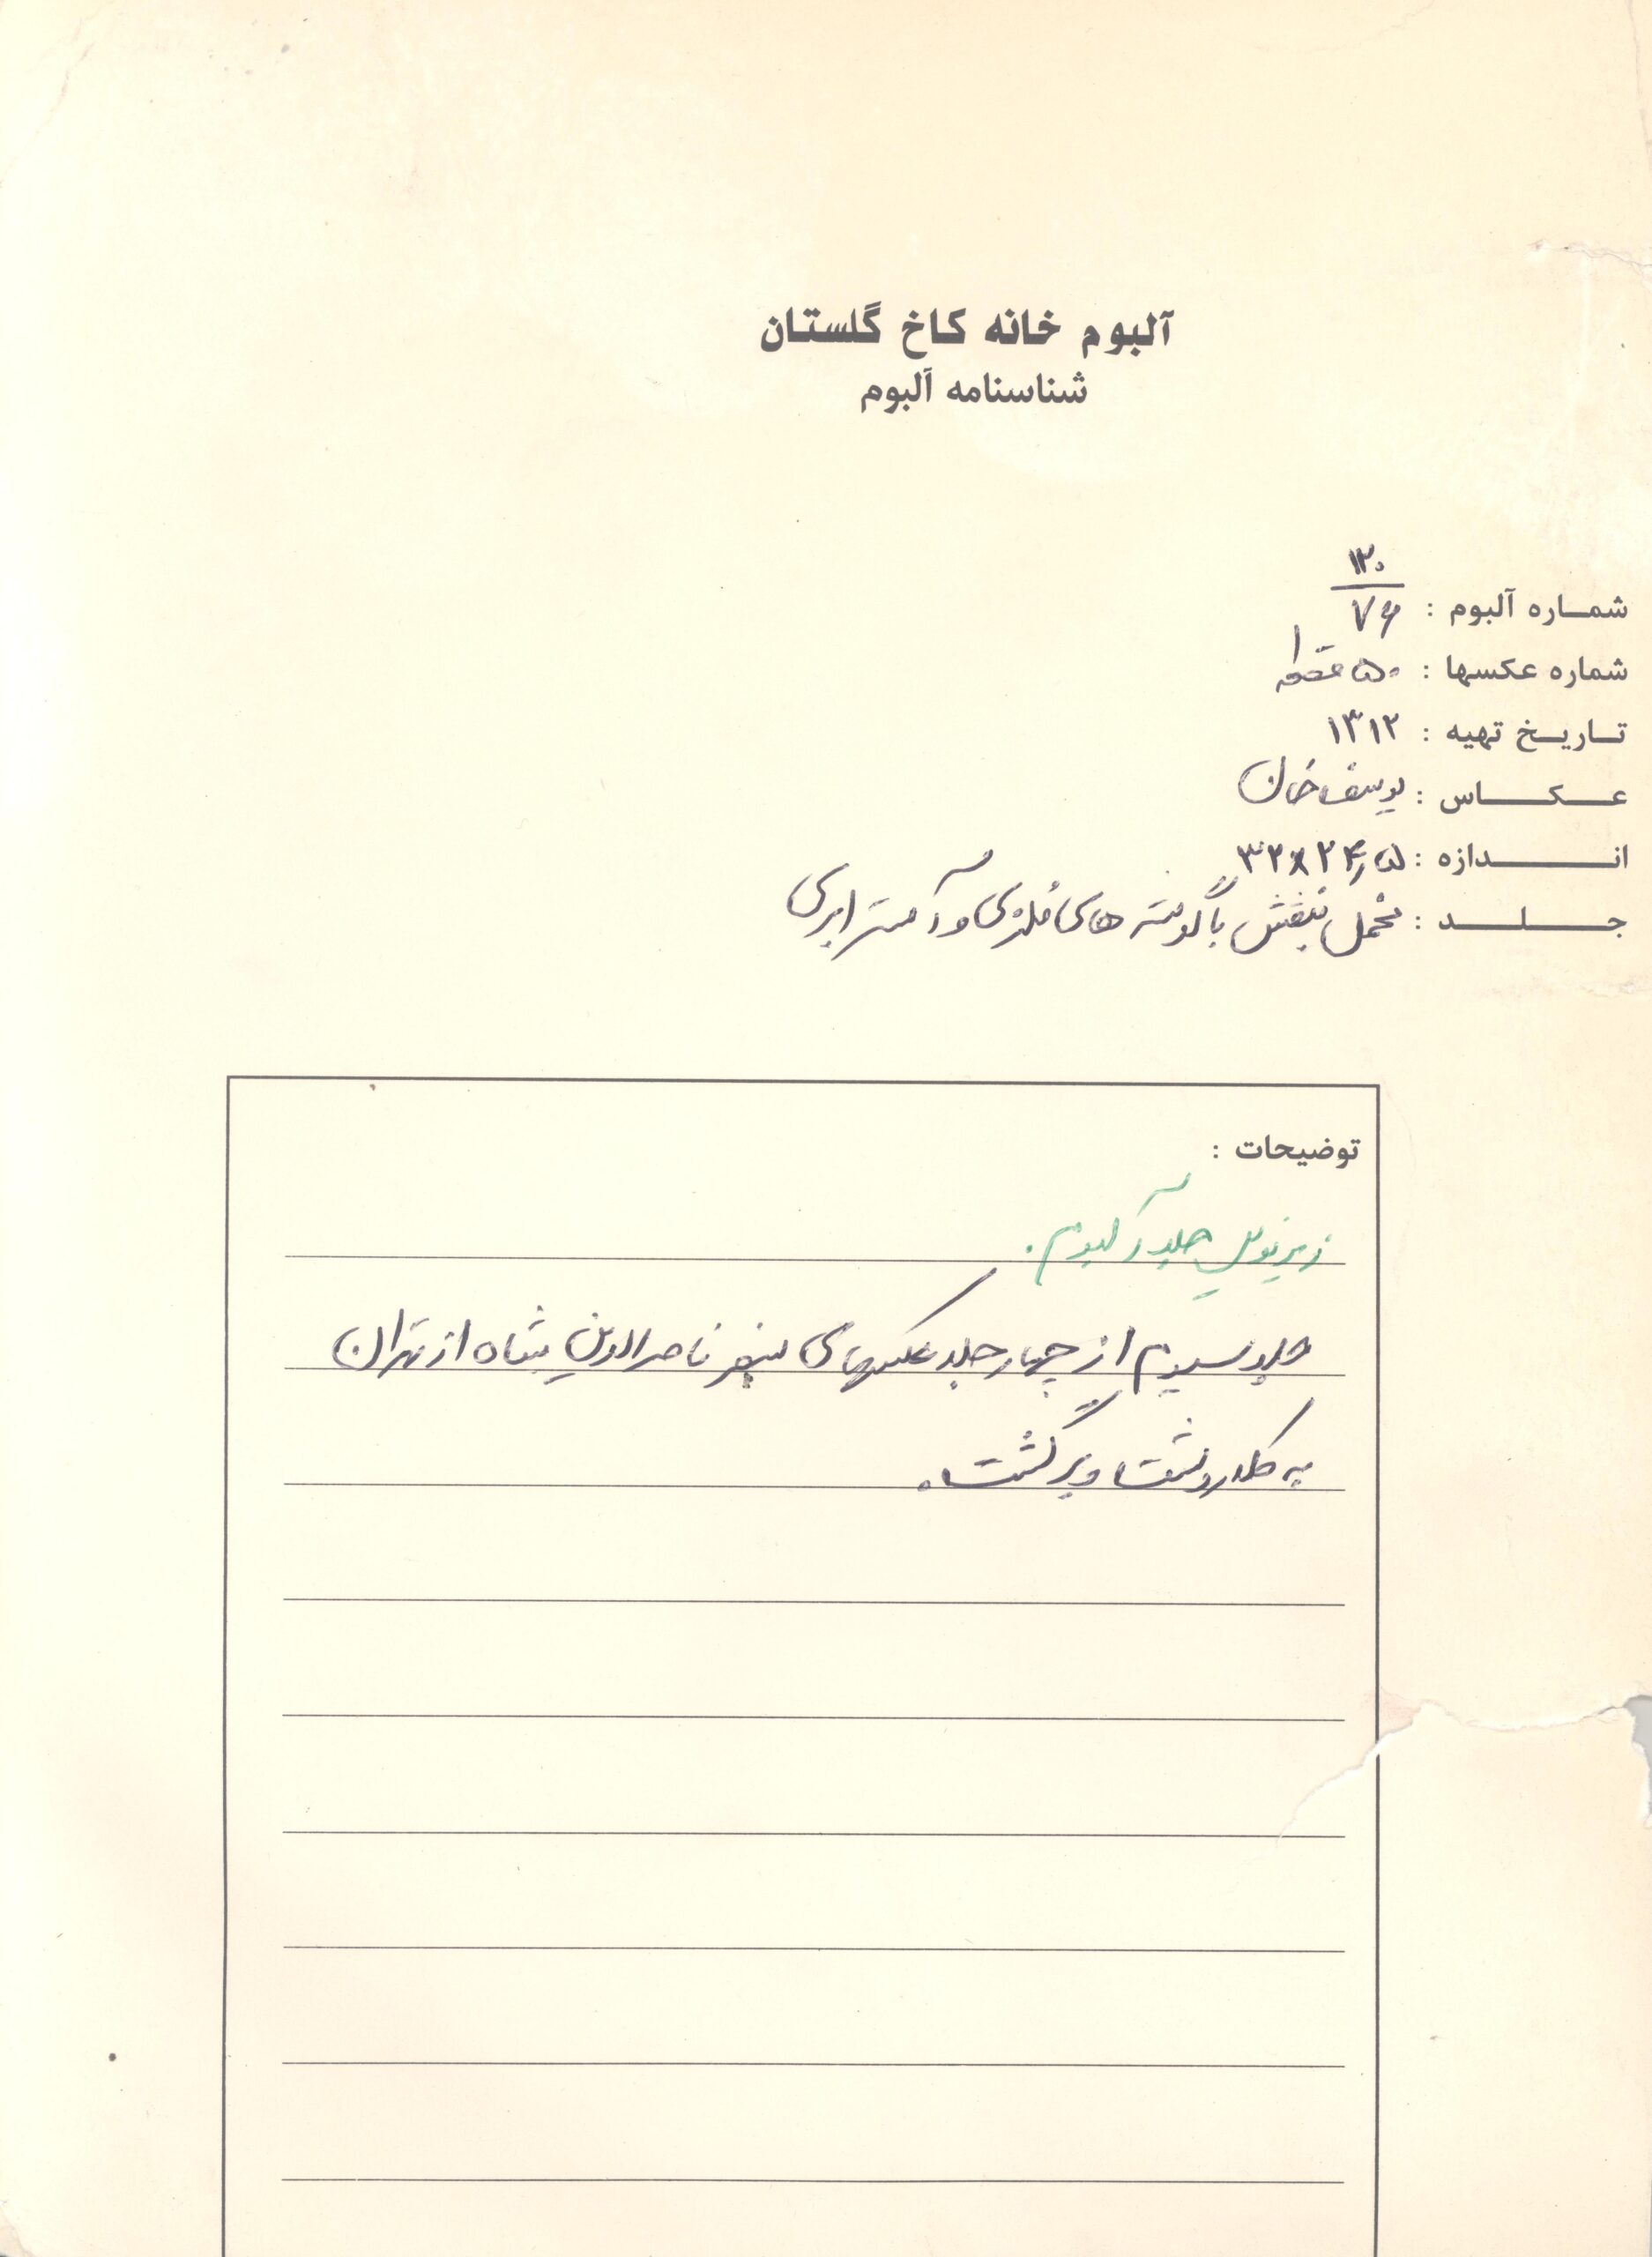 آلبوم خانه کاخ گلستان
شناسنامه آلبوم
۱۳۰
شماره آلبوم : ۷۶
شماره عکسها : ۵۰ قطعه
تاریخ تهیه : ۱۳۱۲
عکاس : یوسف خان
اندازه : ۲۴٫۵ × ۳۲
جلد : مخمل بنفش با گوشه های فلزی و آستر ابری
توضیحات :
زیرنویس جلد آلبوم .
جلد سیوم از چهار جلد عکسهای سفر ناصرالدین شاه از تهران
به کلاردشت و برگشت .